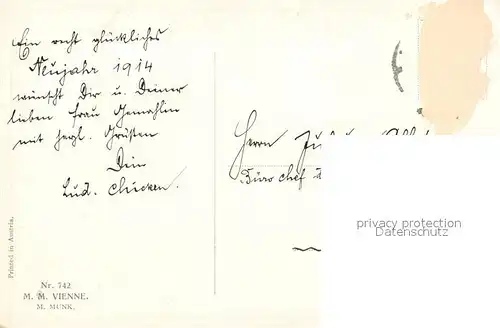 Ein recht glückliches
Neujahr 1914
wünscht Dir u. Deiner
lieben Frau Gemahlin
mit herzl. Grüßen
Dein
Lud.
Herrn
Büro chef
privacy protection
Datenschutz
Printed in Austria.
Nr. 742
M. M. VIENNE.
M. MUNK.